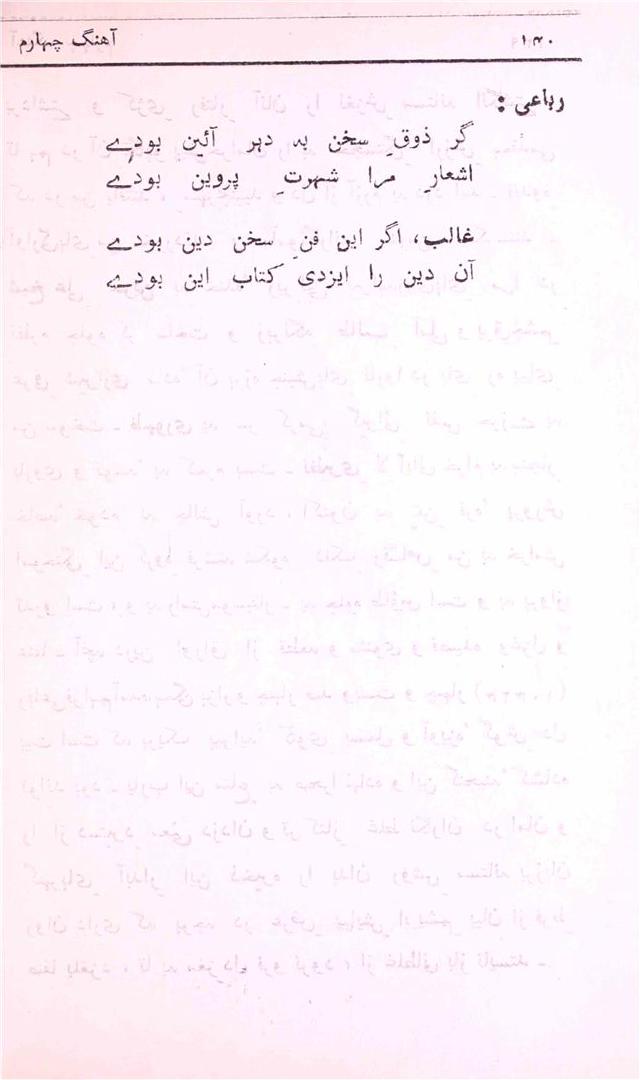 ۱۴۰ آهنگ چهارم
رباعی :
گر ذوقِ سخن به دہر آئین بودے
اشعارِ مرا شہرتِ پروین بودے
غالب، اگر این فنِ سخن دین بودے
آن دین را ایزدی کتاب این بودے